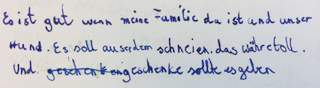 Es ist gut wenn meine Familie da ist und unser
Hund. Es soll auserdem schneien. das währe toll.
Und geschenke sollte es geben